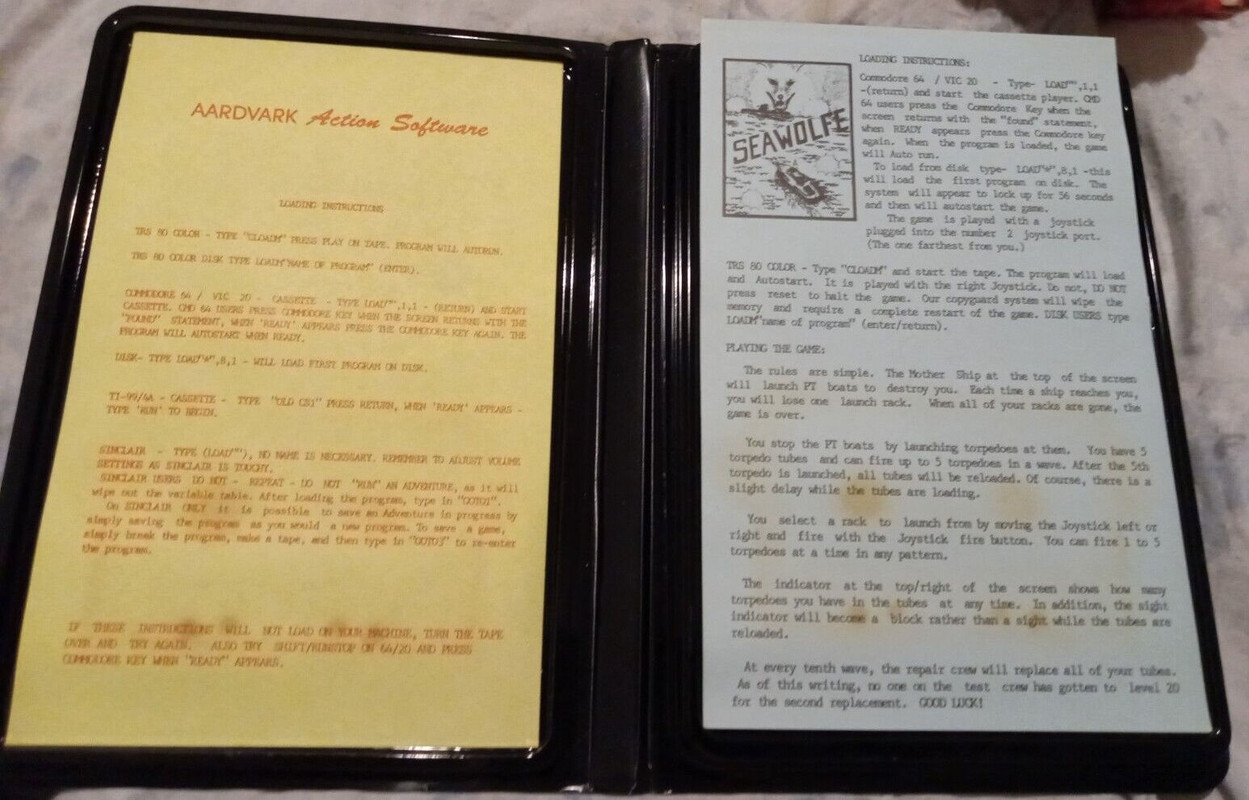 AARDVARK Action Software
LOADING INSTRUCTIONS
TRS 80 COLOR - TYPE "CLOADM" PRESS PLAY ON TAPE. PROGRAM WILL AUTORUN.
TRS 80 COLOR DISK TYPE LOADM"NAME OF PROGRAM" (ENTER).
COMMODORE 64 / VIC 20 - CASSETTE - TYPE LOAD"",1,1 - (RETURN) AND START
CASSETTE. CMD 64 USERS PRESS COMMODORE KEY WHEN THE SCREEN RETURNS WITH THE
"FOUND" STATEMENT, WHEN 'READY' APPEARS PRESS THE COMMODORE KEY AGAIN. THE
PROGRAM WILL AUTOSTART WHEN READY.
DISK- TYPE LOAD"*",8,1 - WILL LOAD FIRST PROGRAM ON DISK.
TI-99/4A - CASSETTE - TYPE "OLD CS1" PRESS RETURN, WHEN 'READY' APPEARS -
TYPE 'RUN' TO BEGIN.
SINCLAIR - TYPE (LOAD""), NO NAME IS NECESSARY. REMEMBER TO ADJUST VOLUME
SETTINGS AS SINCLAIR IS TOUCHY.
SINCLAIR USERS DO NOT - REPEAT - DO NOT "RUN" AN ADVENTURE, as it will
wipe out the variable table. After loading the program, type in "GOTO1".
On SINCLAIR ONLY it is possible to save an Adventure in progress by
simply saving the program as you would a new program. To save a game,
simply break the program, make a tape, and then type in "GOTO3" to re-enter
the program.
IF THESE INSTRUCTIONS WILL NOT LOAD ON YOUR MACHINE, TURN THE TAPE
OVER AND TRY AGAIN. ALSO TRY SHIFT/RUNSTOP ON 64/20 AND PRESS
COMMODORE KEY WHEN "READY" APPEARS.
SEAWOLFE
LOADING INSTRUCTIONS:
Commodore 64 / VIC 20 - Type- LOAD"",1,1
-(return) and start the cassette player. CMD
64 users press the Commodore Key when the
screen returns with the "found" statement,
when READY appears press the Commodore key
again. When the program is loaded, the game
will Auto run.
To load from disk type- LOAD"*",8,1 -this
will load the first program on disk. The
system will appear to lock up for 56 seconds
and then will autostart the game.
The game is played with a joystick
plugged into the number 2 joystick port.
(The one farthest from you.)
TRS 80 COLOR - Type "CLOADM" and start the tape. The program will load
and Autostart. It is played with the right Joystick. Do not, DO NOT
press reset to halt the game. Our copyguard system will wipe the
memory and require a complete restart of the game. DISK USERS type
LOADM"name of program" (enter/return).
PLAYING THE GAME:
The rules are simple. The Mother Ship at the top of the screen
will launch PT boats to destroy you. Each time a ship reaches you,
you will lose one launch rack. When all of your racks are gone, the
game is over.
You stop the PT boats by launching torpedoes at them. You have 5
torpedo tubes and can fire up to 5 torpedoes in a wave. After the 5th
torpedo is launched, all tubes will be reloaded. Of course, there is a
slight delay while the tubes are loading.
You select a rack to launch from by moving the Joystick left or
right and fire with the Joystick fire button. You can fire 1 to 5
torpedoes at a time in any pattern.
The indicator at the top/right of the screen shows how many
torpedoes you have in the tubes at any time. In addition, the sight
indicator will become a block rather than a sight while the tubes are
reloaded.
At every tenth wave, the repair crew will replace all of your tubes.
As of this writing, no one on the test crew has gotten to level 20
for the second replacement. GOOD LUCK!